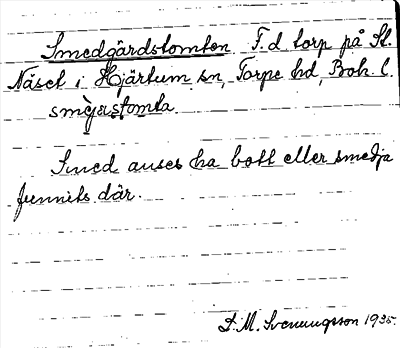 Smedgårdstomten F.d torp på St.
Näset i Hjärtum sn, Torpe hd, Boh. l.
smejerstomta.
Smed anses ha bott eller smedja
funnits där.
S.M. Svenungsson 1935.